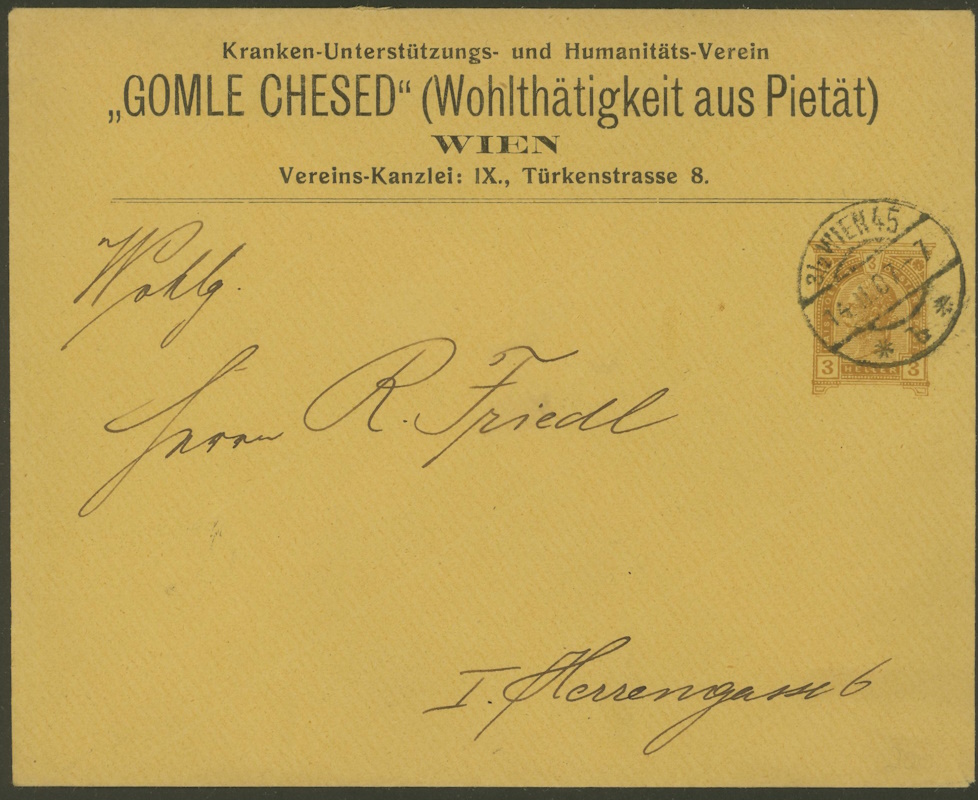 Kranken-Unterstützungs- und Humanitäts-Verein
„GOMLE CHESED“ (Wohlthätigkeit aus Pietät)
WIEN
Vereins-Kanzlei: IX., Türkenstrasse 8.
3/1 WIEN 45
3 HELLER 3
Wohlg.
Herrn R. Friedl
I. Herrengasse 6